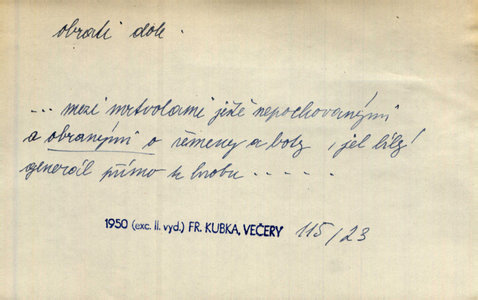 obrati dok.
... mezi mrtvolami ještě nepochovanými
a obranými o řemeny a boty, jel bílý
generál přímo k hrobu .....
1950 (exc. II. vyd.) FR. KUBKA, VEČERY 115/23